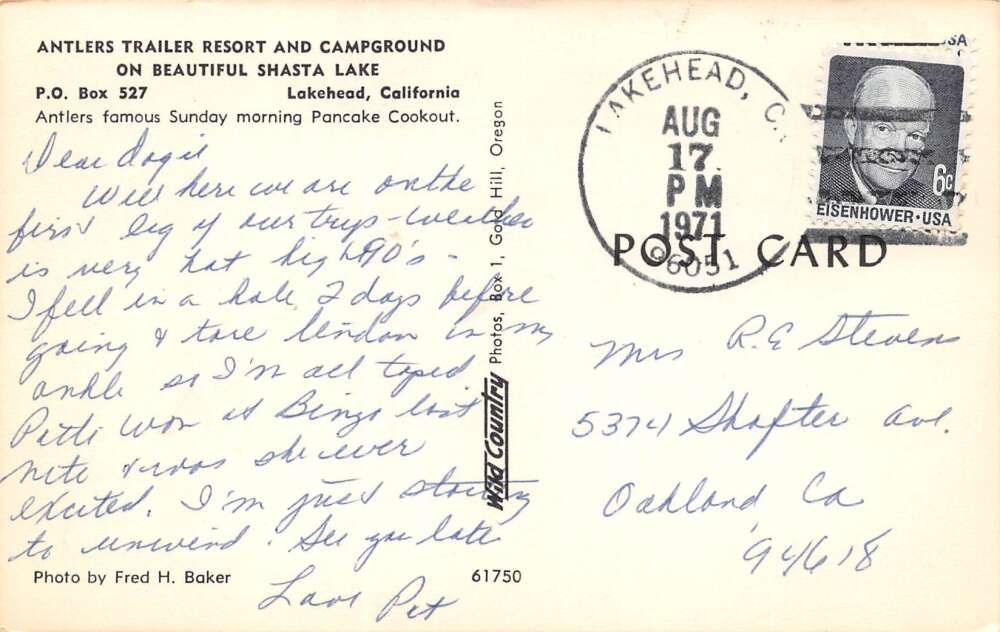 ANTLERS TRAILER RESORT AND CAMPGROUND
ON BEAUTIFUL SHASTA LAKE
P.O. Box 527 Lakehead, California
Antlers famous Sunday morning Pancake Cookout.
Dear
Well here we are on the
first leg of our trips - weather
is very hot high 90's -
I fell in a hole 2 days before
going & tore tendon in my
ankle so I'm all taped.
Patti won at Bingo last
nite & was she ever
excited. I'm just starting
to unwind. See you late
Love Pat
Photo by Fred H. Baker
61750
Wild Country Photos, Box 1, Gold Hill, Oregon
LAKEHEAD, CA
AUG
17
PM
1971
96051
USA
6c
EISENHOWER · USA
POST CARD
Mrs R.E Stevens
5374 Shafter Ave.
Oakland Ca
94618